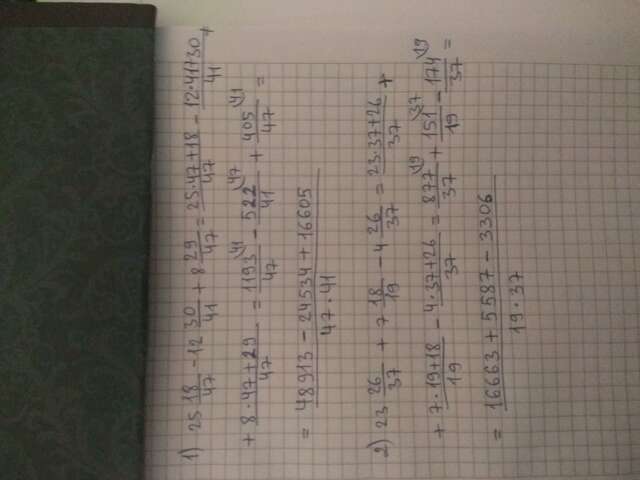 1) 25 18/47 - 12 30/41 + 8 29/47 = (25·47+18)/47 - (12·41+30)/41 +
+ (8·47+29)/47 = 1193^(41/47 - 522^(47/41 + 405^(41/47 =
= (48913 - 24534 + 16605)/(47·41)
2) 23 26/37 + 7 18/19 - 4 26/37 = (23·37+26)/37 +
+ (7·19+18)/19 - (4·37+26)/37 = 877^(19/37 + 151^(37/19 - 174^(19/37 =
= (16663 + 5587 - 3306)/(19·37)